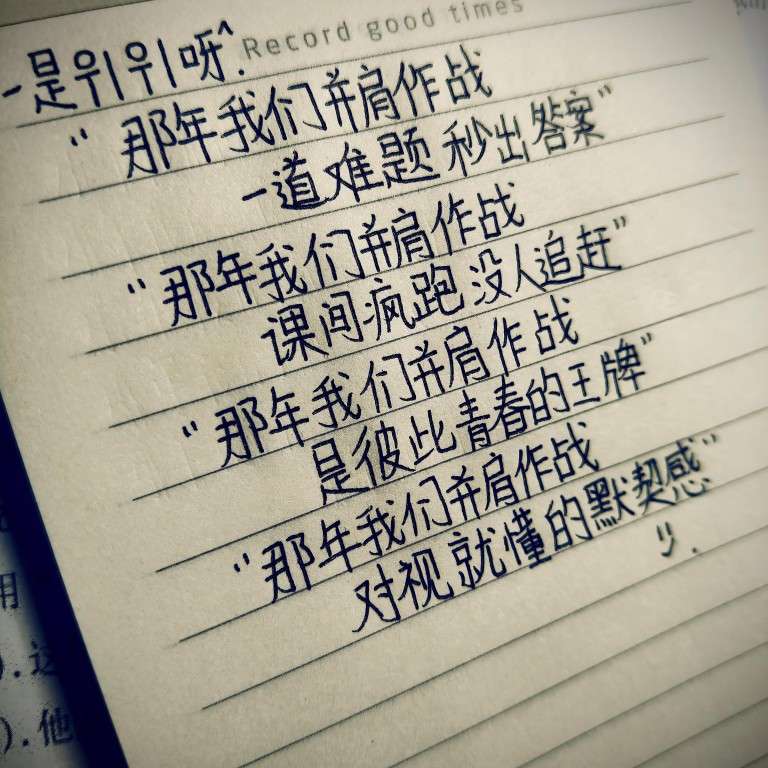 Record good times
-是위위呀^.
“那年我们并肩作战
一道难题 秒出答案”
“那年我们并肩作战
课间疯跑 没人追赶”
“那年我们并肩作战
是彼此青春的王牌”
“那年我们并肩作战
对视就懂的默契感”
用
).这
).他